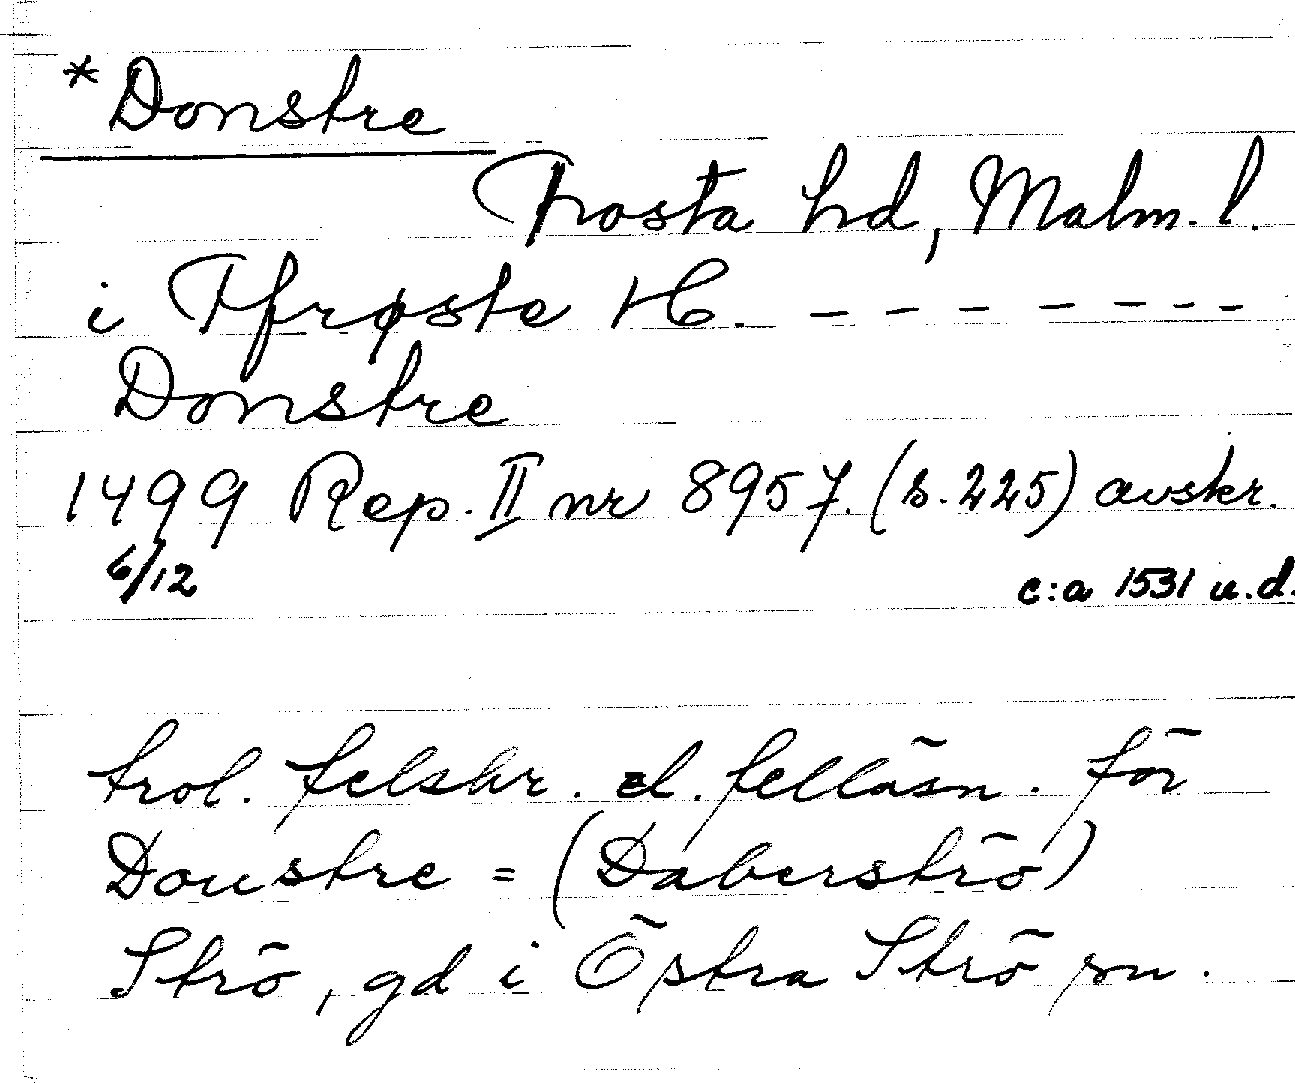 *Donstre
Frosta hd, Malm. l.
i Ffrøste H. - - - - - - -
Donstre
1499 Rep. II nr 8957. (s. 225) avskr.
6/12 c:a 1531 u.d.
trol. felskr. el. felläsn. för
Doustre = (Daberströ)
Strö, gd i Östra Strö sn.